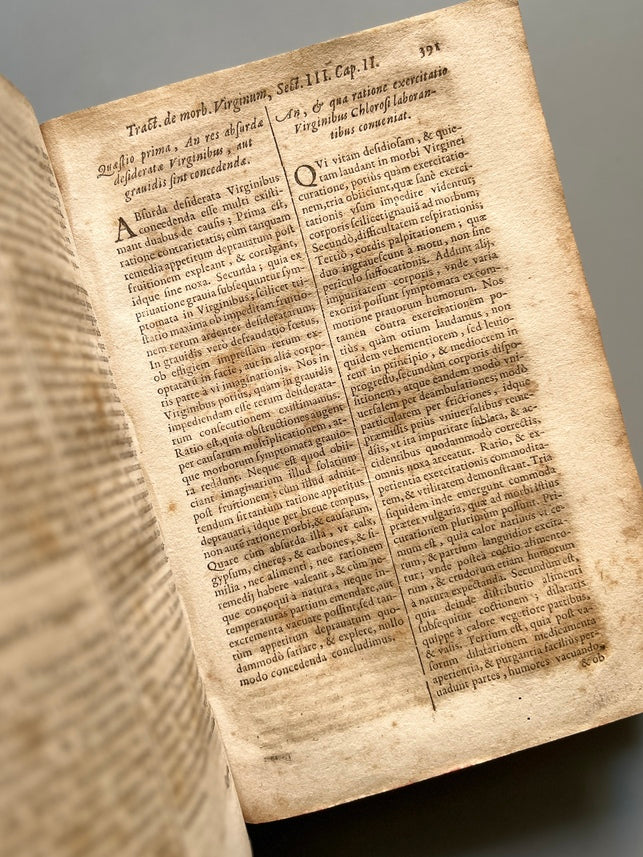 Tract. de morb. Virginum, Sect. III. Cap. II. 391
Quæstio prima, An res absurdæ
desideratæ Virginibus, aut
grauidis sint concedendæ.
ABsurda desiderata Virginibus
concedenda esse multi existi-
mant duabus de causis; Prima est,
ratione contrarietatis, cùm tanquam
remedia appetitum deprauatum post
fruitionem expleant, & corrigant,
idque sine noxa. Secunda; quia ex
priuatione grauia subsequuntur sym-
ptomata in Virginibus, scilicet tri-
stitia maxima ob impeditam fruitio-
nem rerum ardenter desideratarum,
In grauidis verò defraudatio fœtus,
ob effigiem impressam rerum ex-
optatarū in facie, aut in alia corpo-
ris parte à vi imaginationis. Nos in
Virginibus potiùs, quàm in grauidis
impediendam esse rerum desiderata-
rum consecutionem existimamus.
Ratio est, quia obstructiones augent
per causarum multiplicationem, at-
que morborum symptomata grauio-
ra reddunt. Neque est quod obii-
ciant imaginarium illud solatium
post fruitionem; cùm illud admit-
tendum sit tantùm ratione appetitus
deprauati, idque per breue tempus,
non autē ratione morbi, & causarum
Quare cùm absurda illa, vt calx,
gypsum, cineres, & carbones, & si-
milia, nec alimenti, nec rationem
remedij habere valeant, & cùm ne-
que concoqui à natura, neque in-
temperaturas partium emendare, aut
excrementa vacuare possint, sed tan-
tùm appetitum deprauatum quo-
dammodo satiare, & explere, nullo
modo concedenda concludimus.
An, & qua ratione exercitatio
Virginibus Chlorosi laboran-
tibus conueniat.
QVi vitam desidiosam, & quie-
tam laudant in morbi Virginei
curatione, potius quàm exercitatio-
nem, tria obiiciunt, quæ sanè exerci-
tationis vsum impedire videntur,
corporis scilicet ignauiā ad morbum,
Secundò, difficultatem respirationis,
Tertiò, cordis palpitationem; quæ
duo ingrauescunt à motu, non sine
periculo suffocationis. Addunt alij,
impuritatem corporis, vnde varia
exoriri possunt symptomata ex com-
motione prauorum humorum. Nos
tamen contra exercitationem po-
tiùs, quàm otium laudamus, non
quidem vehementiorem, sed leuio-
rem in principio, & mediocrem in
progressu, secundum corporis dispo-
sitionem, atque eandem modò vni-
uersalem per deambulationes, modò
particularem per frictiones, idque
præmissis priùs vniuersalibus reme-
diis, vt ita impuritate sublata, & ac-
cidentibus quodammodo correctis,
omnis noxa arceatur. Ratio, & ex-
perientia exercitationis commodita-
tem, & vtilitatem demonstrant. Tria
siquidem inde emergunt commoda
præter vulgaria, quæ ad morbi istius
curationem plurimùm possunt. Pri-
mum est, quia calor natiuus vi ce-
rium, & partium languidior excita-
tur; vnde postea coctio alimento-
rum, & crudorum etiam humorum
à natura expectanda. Secundum est,
quia deinde distributio alimenti
subsequitur coctionem; dilatatis
quippe à calore vegetiore partibus,
& valis. Tertium est, quia post va-
sorum dilatationem medicamenta
aperientia, & purgantia faciliùs per-
uadunt partes, humores vacuando,
& ob